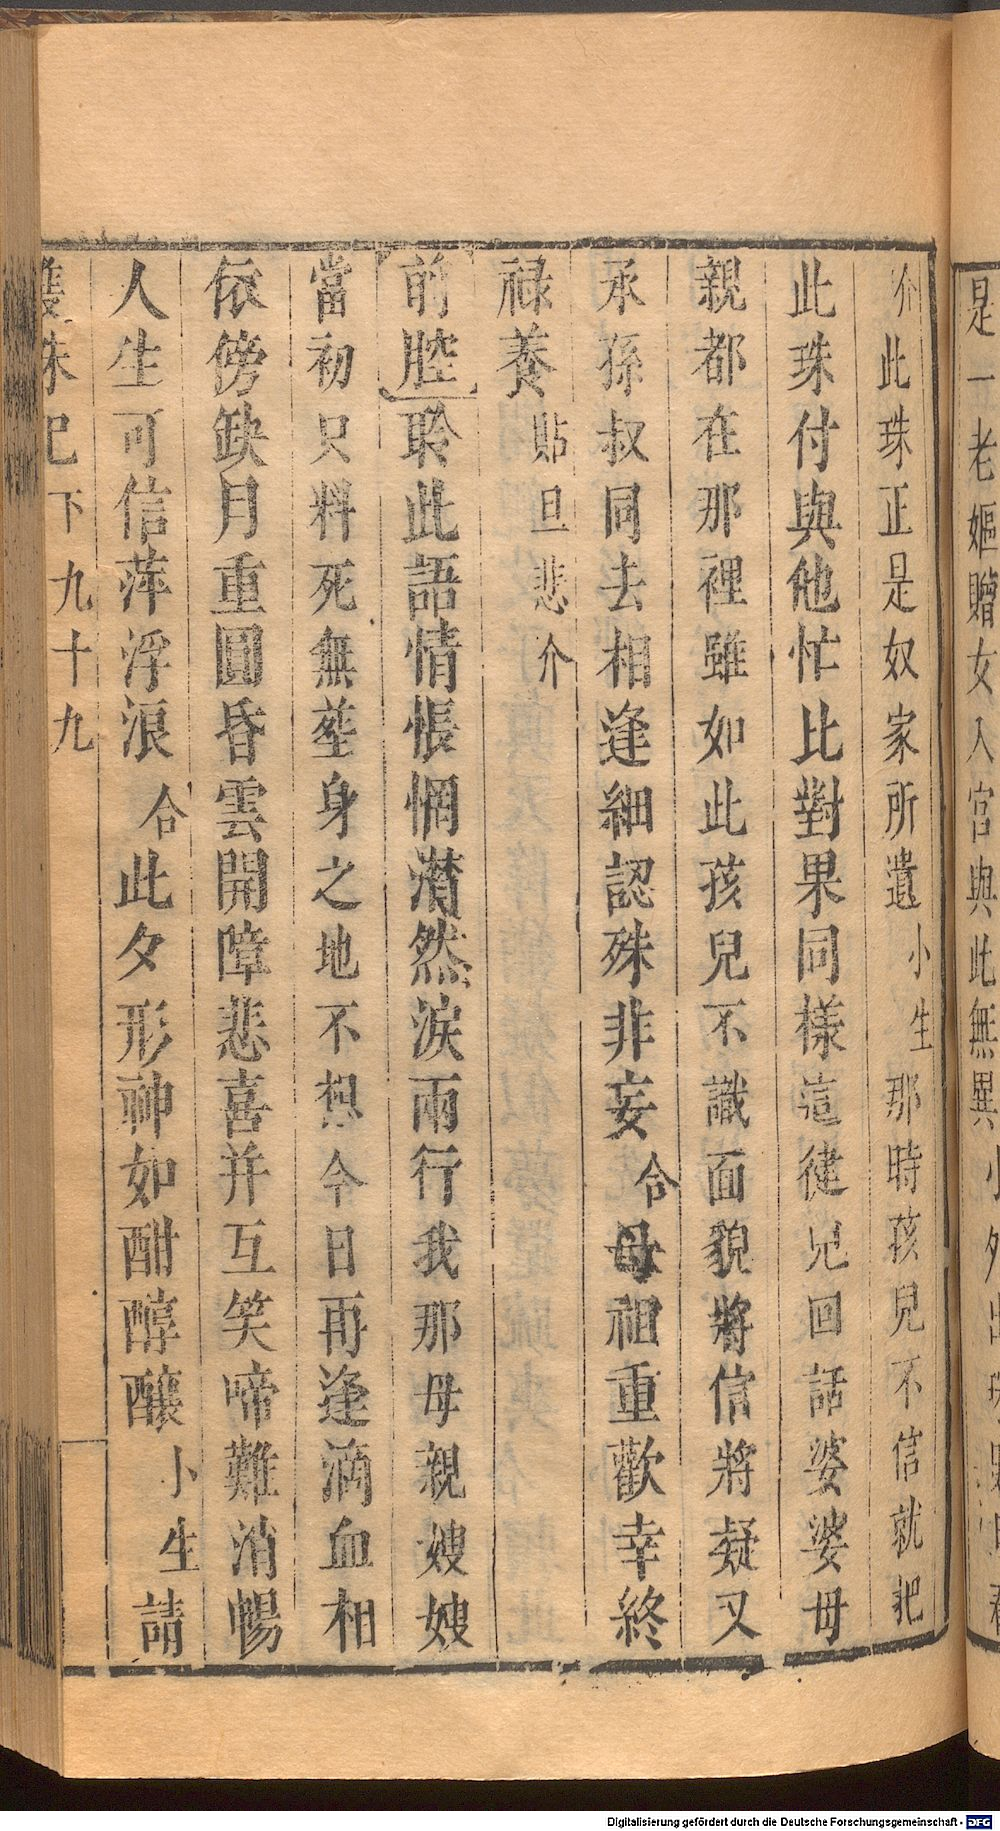 是一老嫗贈女入宮與此無異小外出珠
介此珠正是奴家所遺小生那時孩兒不信就把
此珠付與他忙比對果同樣這徤兒回話婆婆母
親都在那裡雖如此孩兒不識面貌將信將疑又
承孫叔同去相逢細認殊非妄合母祖重歡幸終
禄養貼旦悲介
前腔聆此語情悵惘潸然淚兩行我那母親嫂嫂
當初只料死無塟身之地不想今日再逢滴血相
依傍缺月重圓昏雲開障悲喜并互笑啼難消暢
人生可信萍浮浪合此夕形神如酣醇釀小生請
雙珠巳下九十九
Digitalisierung gefördert durch die Deutsche Forschungsgemeinschaft - DFG